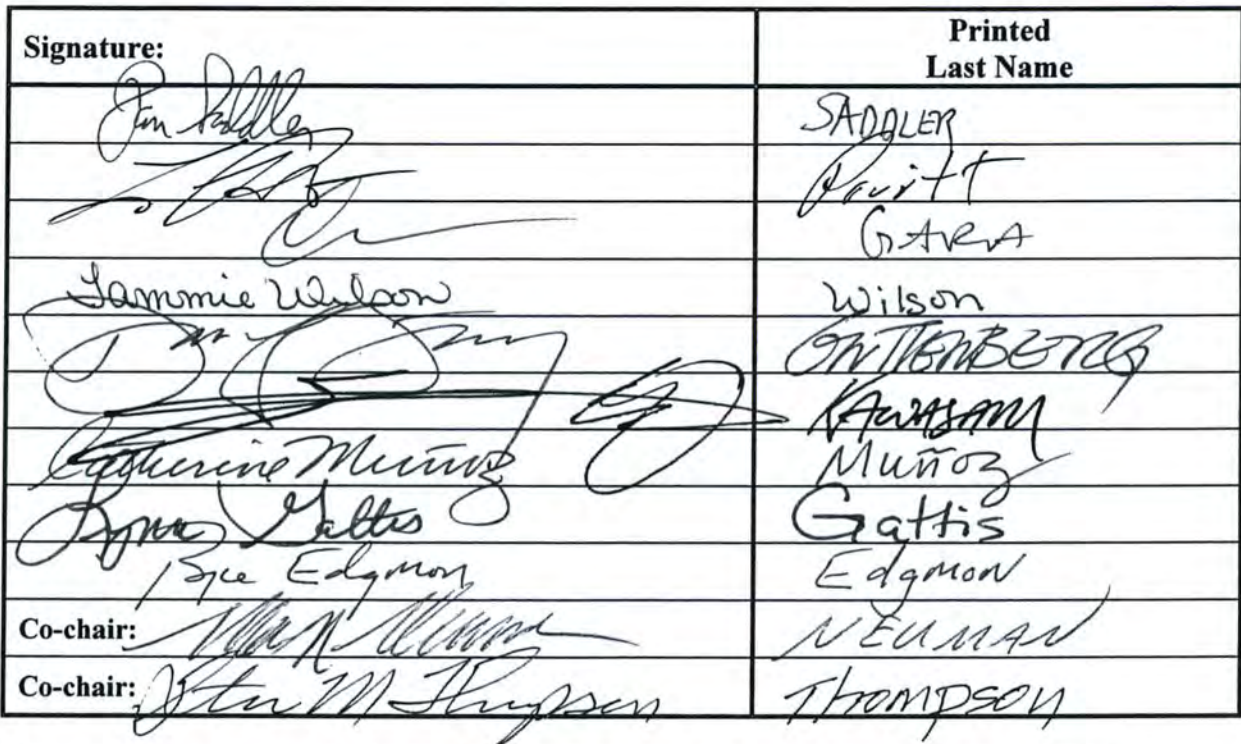 Signature:
Printed
Last Name
SADDLER
Pruitt
GARA
Tammie Wilson Wilson
GUTTENBERG
KAWASAKI
Catherine Muñoz Muñoz
Lynn Gattis Gattis
Bryce Edgmon Edgmon
Co-chair: NEUMAN
Co-chair: Steve M Thompson THOMPSON